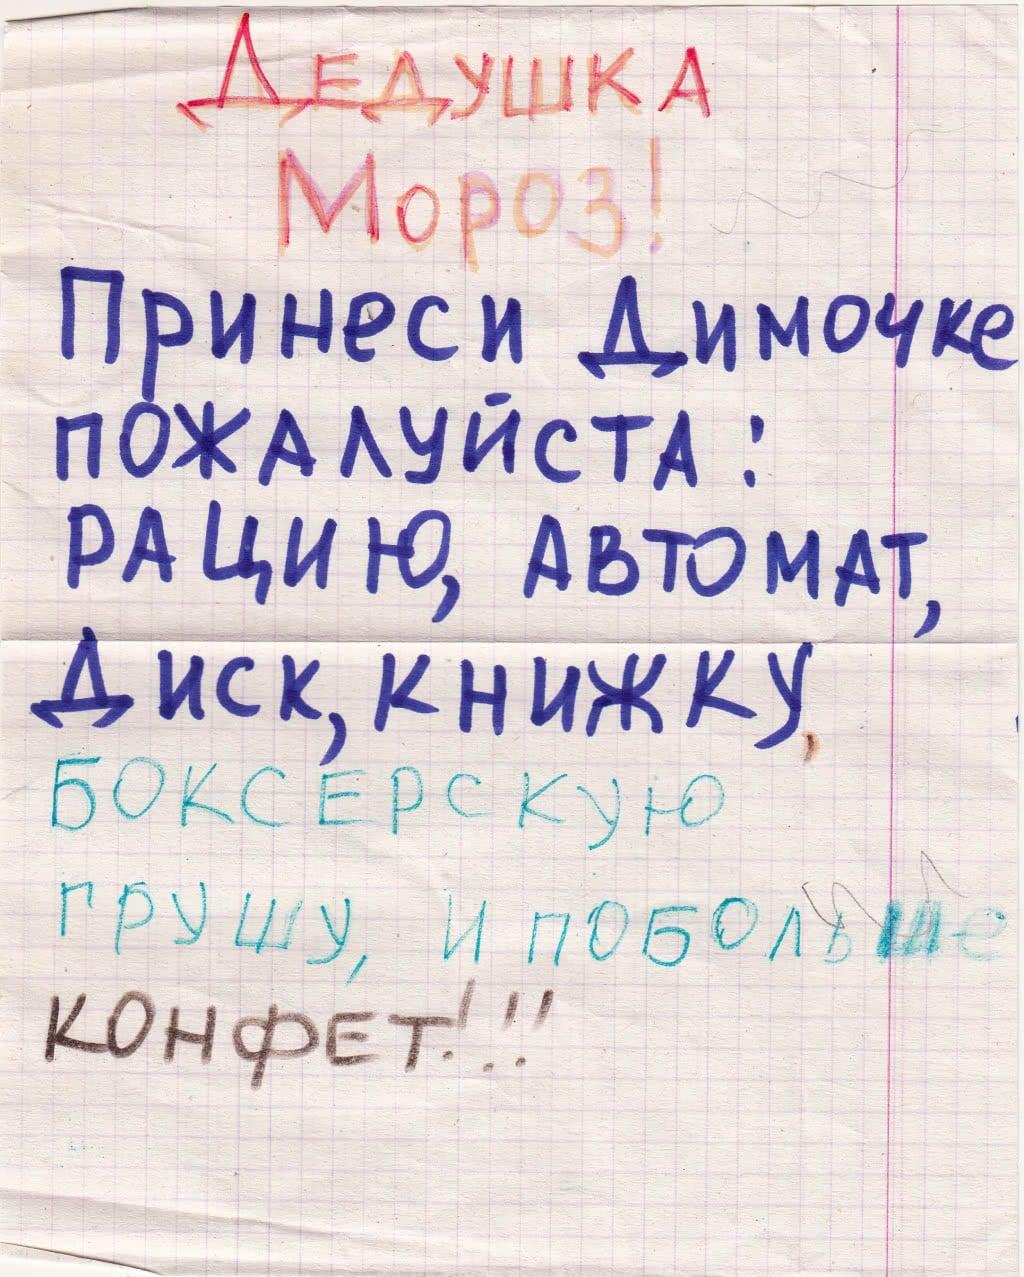 Дедушка
Мороз!
Принеси Димочке
пожалуйста:
рацию, автомат,
Диск, книжку,
боксерскую
грушу, и побольше
конфет!!!